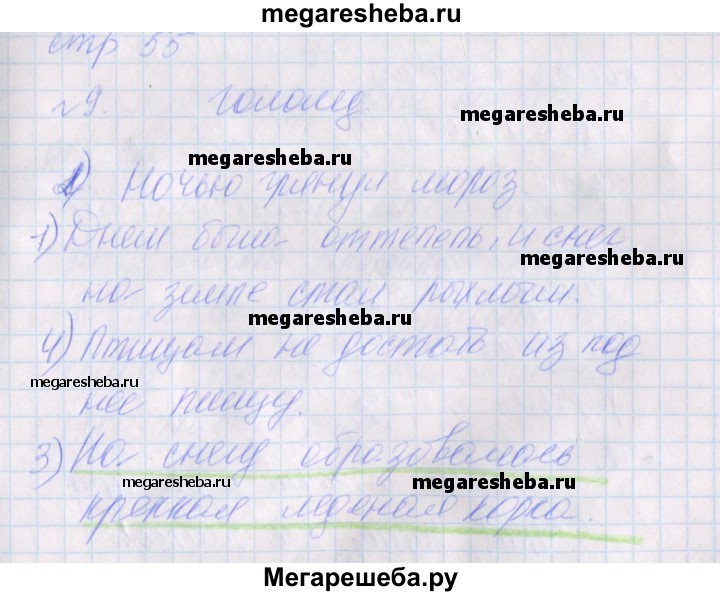 megaresheba.ru
стр 55
№9. Гололед.
megaresheba.ru
megaresheba.ru
2) Ночью грянул мороз.
1) Днем была оттепель, и снег
megaresheba.ru
на земле стал рыхлым.
megaresheba.ru
4) Птицам не достать из под
megaresheba.ru
нее пищу.
3) На снегу образовалась
megaresheba.ru
megaresheba.ru
крепкая леденая корка.
Мегарешеба.ру